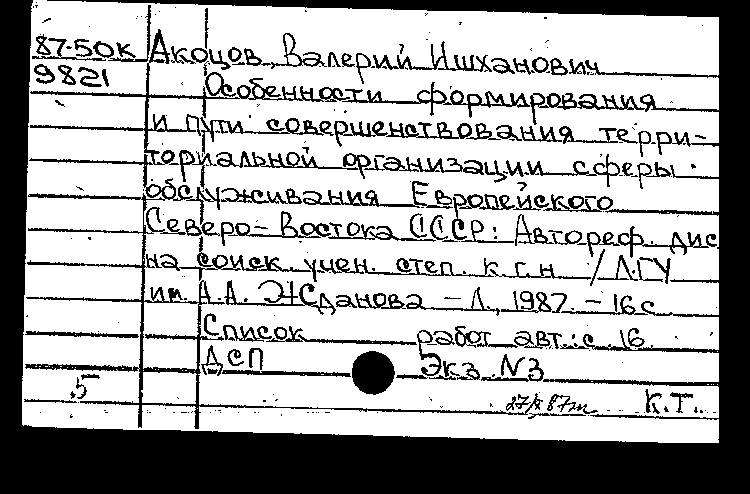 87-50К Акоцов, Валерий Ишханович
9821 Особенности формирования
и пути совершенствования терри-
ториальной организации сферы
обслуживания Европейского
Северо-Востока СССР: Автореф. дис
на соиск. учен. степ. к.г.н. /ЛГУ
им. А.А. Жданова - Л., 1987. - 16 с.
Список работ авт.: с. 16
ДСП Экз. N3
5 К.Т.